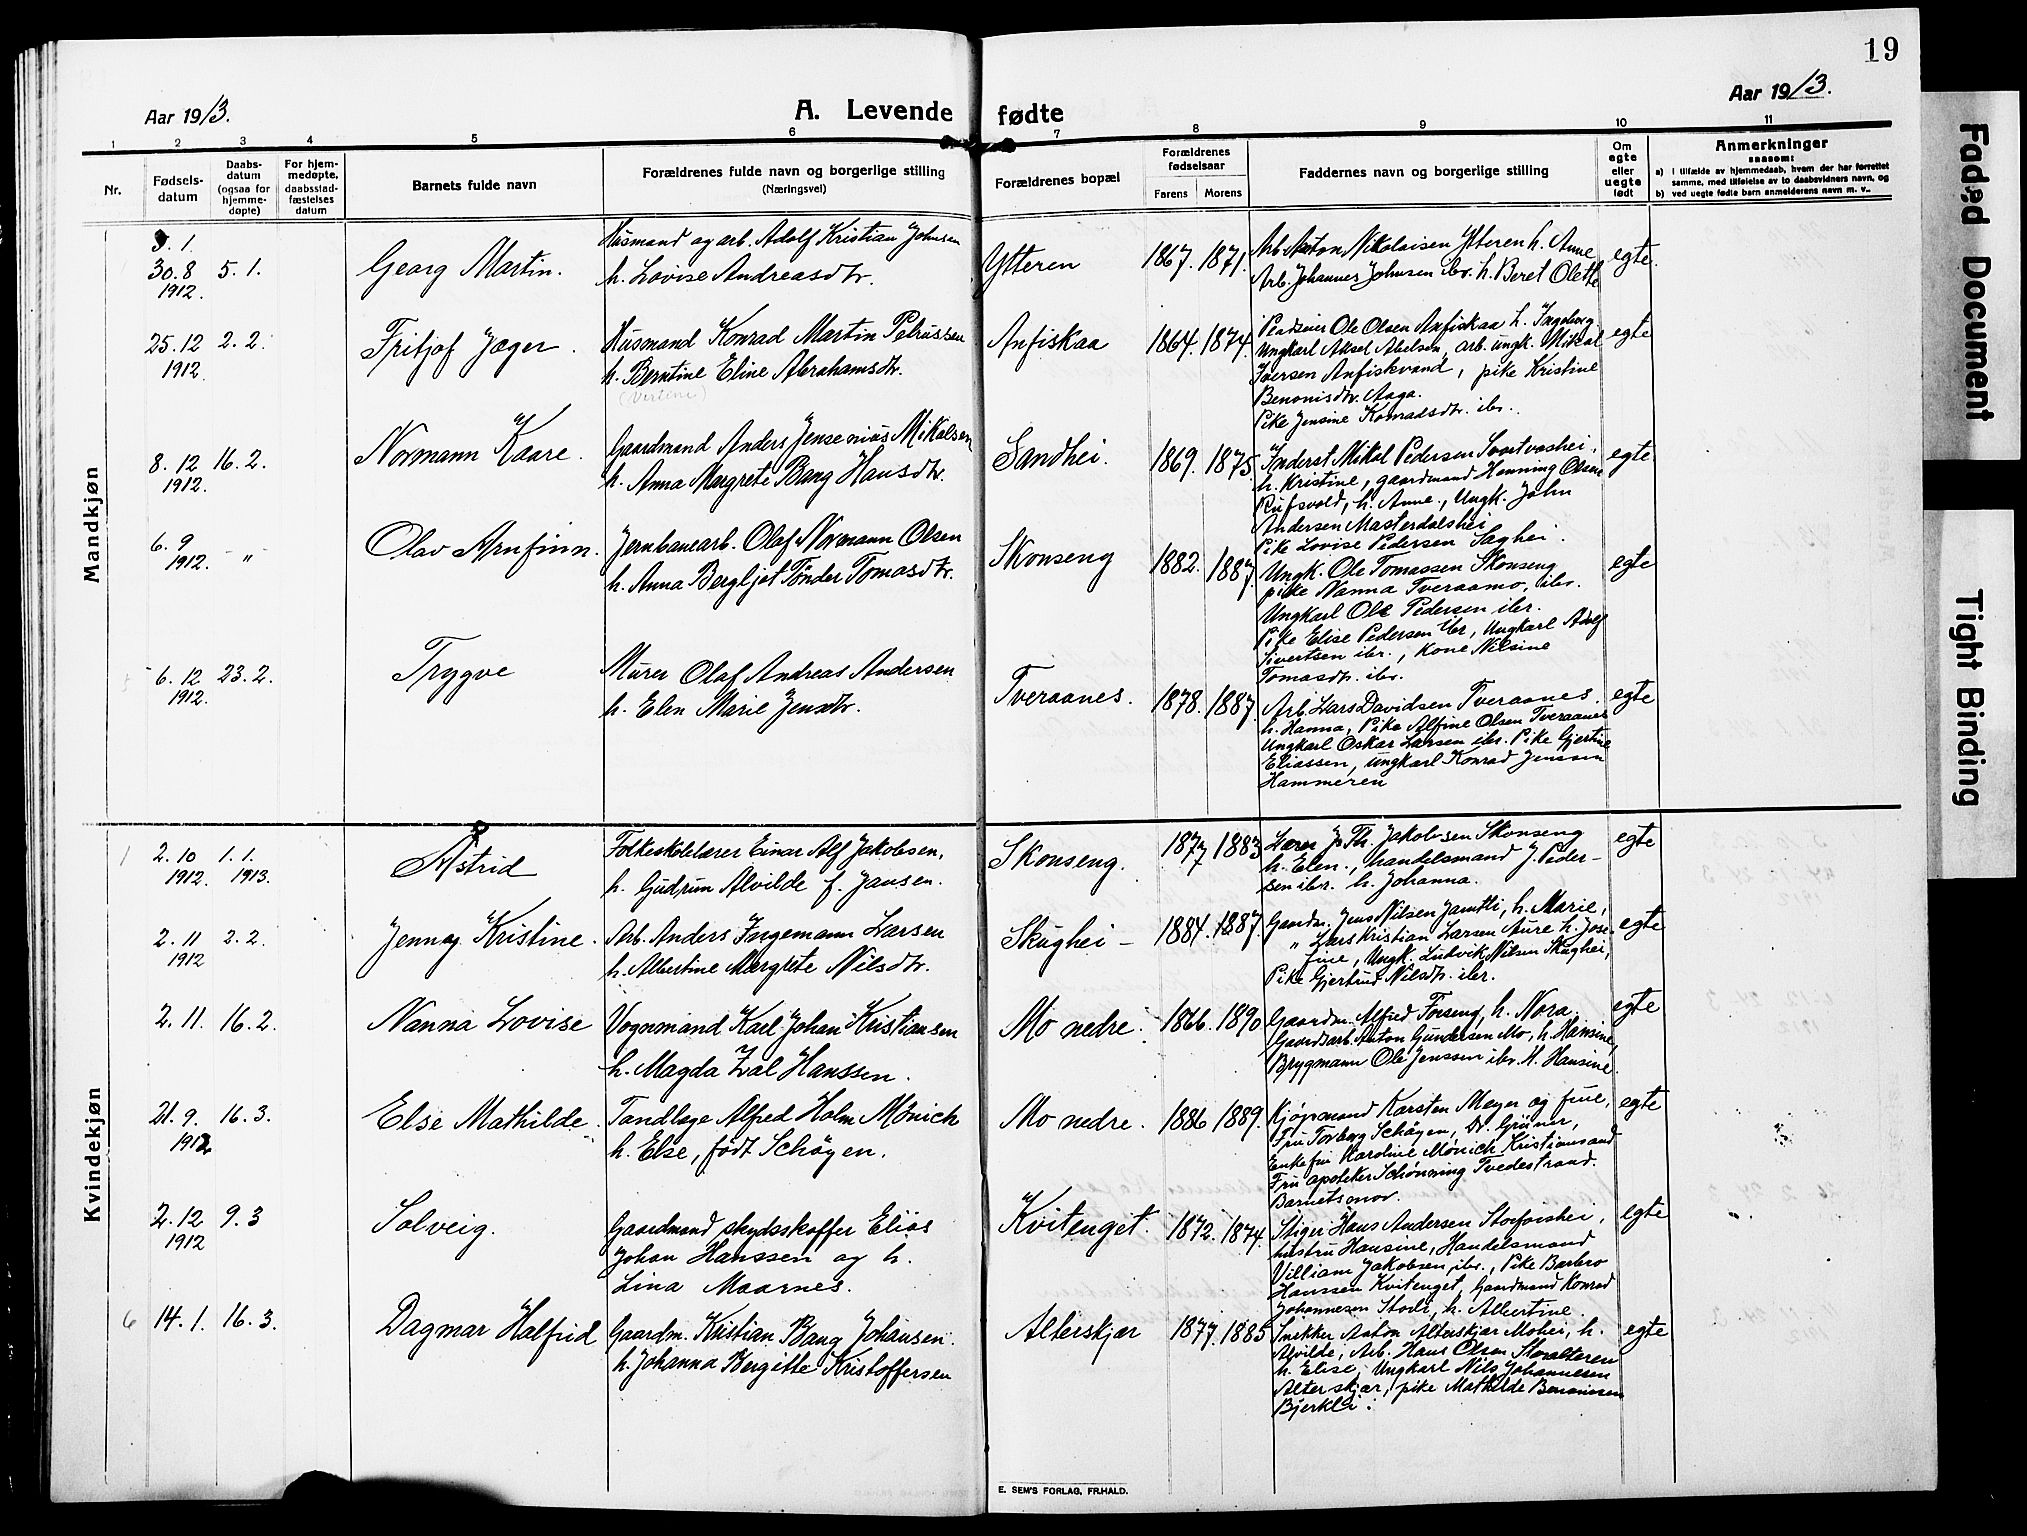 19
Aar 1913.
A. Levende fødte
Aar 1913.
1 2 3 4 5 6 7 8 9 10 11
Nr.
Fødsels-
datum
Daabs-
datum
(ogsaa for
hjemme-
døpte)
For hjem-
medøpte,
daabsstad-
fæstelses
datum
Barnets fulde navn
Forældrenes fulde navn og borgerlige stilling
(Næringsvei)
Forældrenes bopæl
Forældrenes
fødselsaar
Farens Morens
Faddernes navn og borgerlige stilling
Om
egte
eller
uegte
født
Anmerkninger
saasom:
a) i tilfælde av hjemmedaab, hvem der har forrettet
samme, med tilføielse av to daabsvidners navn, og
b) ved uegte fødte barn anmelderens navn m. v..
Mandkjøn
30.8
1912.
5.1.
Georg Martin.
Husmand og arb. Adolf Kristian Johnsen
h. Lovise Andreasdtr.
Ytteren
1867. 1871.
Arb. Anton Nikolaisen Ytteren h. Anne
Arb. Johannes Johnsen ibr. h. Beret Olette
egte.
25.12
1912.
2.2.
Fritjof Jæger.
Husmand Konrad Martin Petrussen
h. Berntine Eline Abrahamsdtr.
Anfiskaa
1864. 1874.
Pladseier Ole Olsen Anfiskaa h. Ingeborg
Ungkarl Aksel Abelsen, arb. ungk. Mikal
Iversen Anfiskvand, pike Kristine
Benonisdtr. Aaga.
Pike Jensine Konradsdtr. ibr.
egte
8.12
1912.
16.2.
Normann Kaare.
Gaardmand Anders Jensenius Mikalsen
h. Anna Margrete Bang Hansdtr.
Sandhei.
1869. 1875.
Inderst Mikal Pedersen Svartvashei,
h. Kristine, gaardmand Henning Olsen
Rufsvold, h. Anne, Ungk. John
Andersen Masterdalshei
Pike Lovise Pedersen Saghei.
egte
6.9
1912.
- " -
Olav Arnfinn.
Jernbanearb. Olaf Normann Olsen
h. Anna Bergljot Tønder Tomasdtr.
Skonseng
1882. 1887.
Ungk. Ole Tomassen Skonseng
pike Nanna Tveraamo, ibr.
Ungkarl Ole Pedersen ibr.
Pike Elise Pedersen ibr, Ungkarl Adolf
Sivertsen ibr., kone Nilsine
Tomasdtr. ibr.
egte
6.12
1912.
23.2.
Trygve
Murer Olaf Andreas Andersen
h. Elen Marie Jensdtr.
Tveraanes.
1878. 1887.
Arb. Lars Davidsen Tveraanes.
h. Hanna, Pike Alfine Olsen Tveraanes
Ungkarl Oskar Larsen ibr. Pike Gjertine
Eliassen, ungkarl Konrad Jenssen
Hammeren
egte
Kvindekjøn
1
2.10
1912.
1.1.
1913.
Astrid
Folkeskolelærer Einar Alf Jakobsen,
h. Gudrun Alvilde f. Jansen.
Skonseng.
1877 1883
Lærer J. Th. Jakobsen Skonseng
h. Elen., handelsmand J. Peder-
sen ibr. h. Johanna.
egte
2.11
1912
2.2.
Jenny Kristine.
Arb. Anders Ingemann Larsen
h. Albertine Margrete Nilsdtr.
Skughei -
1884. 1887.
Gaardm. Jens Nilsen Jamtli, h. Marie,
" Lars Kristian Larsen Aure h. Jose-
fine, Ungk. Ludvik Nilsen Skughei,
Pike Gjertrud Nilsdtr. ibr.
egte
2.11.
16.2.
Nanna Lovise
Vognmand Karl Johan Kristiansen
h. Magda Zal Hanssen.
Mo nedre.
1866. 1890
Gaardm. Alfred Forseng, h. Nora
Gaardsarb. Anton Gundersen Mo, h. Hansine,
Brygmann Ole Jenssen ibr. H. Hansine.
egte
21.9.
1912
16.3.
Else Mathilde
Tandlæge Alfred Holm Mönich
h. Else, født Schøyen.
Mo nedre.
1886 1889.
Kjøpmand Karsten Meyer og frue,
Fru Torberg Schøyen, Dr. Grüner,
Enkefru Karoline Mønich Kristiansand
Fru apoteker Schönning Tvedestrand.
Barnets mor.
egte
2.12
1912
9.3
Solveig.
Gaardmand skydsskaffer Elias
Johan Hanssen og h.
Lina Maarnes.
Kvitenget.
1872. 1874.
Stiger Hans Andersen Storforshei,
hustru Hansine, Handelsmand
Villiam Jakobsen ibr., Pike Barbro
Hanssen Kvitenget, Gaardmand Konrad
Johannesen Storli, h. Albertine.
egte
6
14.1.
16.3.
Dagmar Halfrid
Gaardm. Kristian Bang Johansen.
h. Johanna Bergitte Kristoffersen
Alterskjær
1877. 1885
Snikker Anton Alterskjær Mohei, h.
Alvilde, Arb. Hans Olsen Storalteren
h. Elise, Ungkarl Nils Johannesen
Alterskjær, pike Mathilde Benonisen
Bjerkli.
egte
E. SEM'S FORLAG, FR.HALD.
Faded Document
Tight Binding